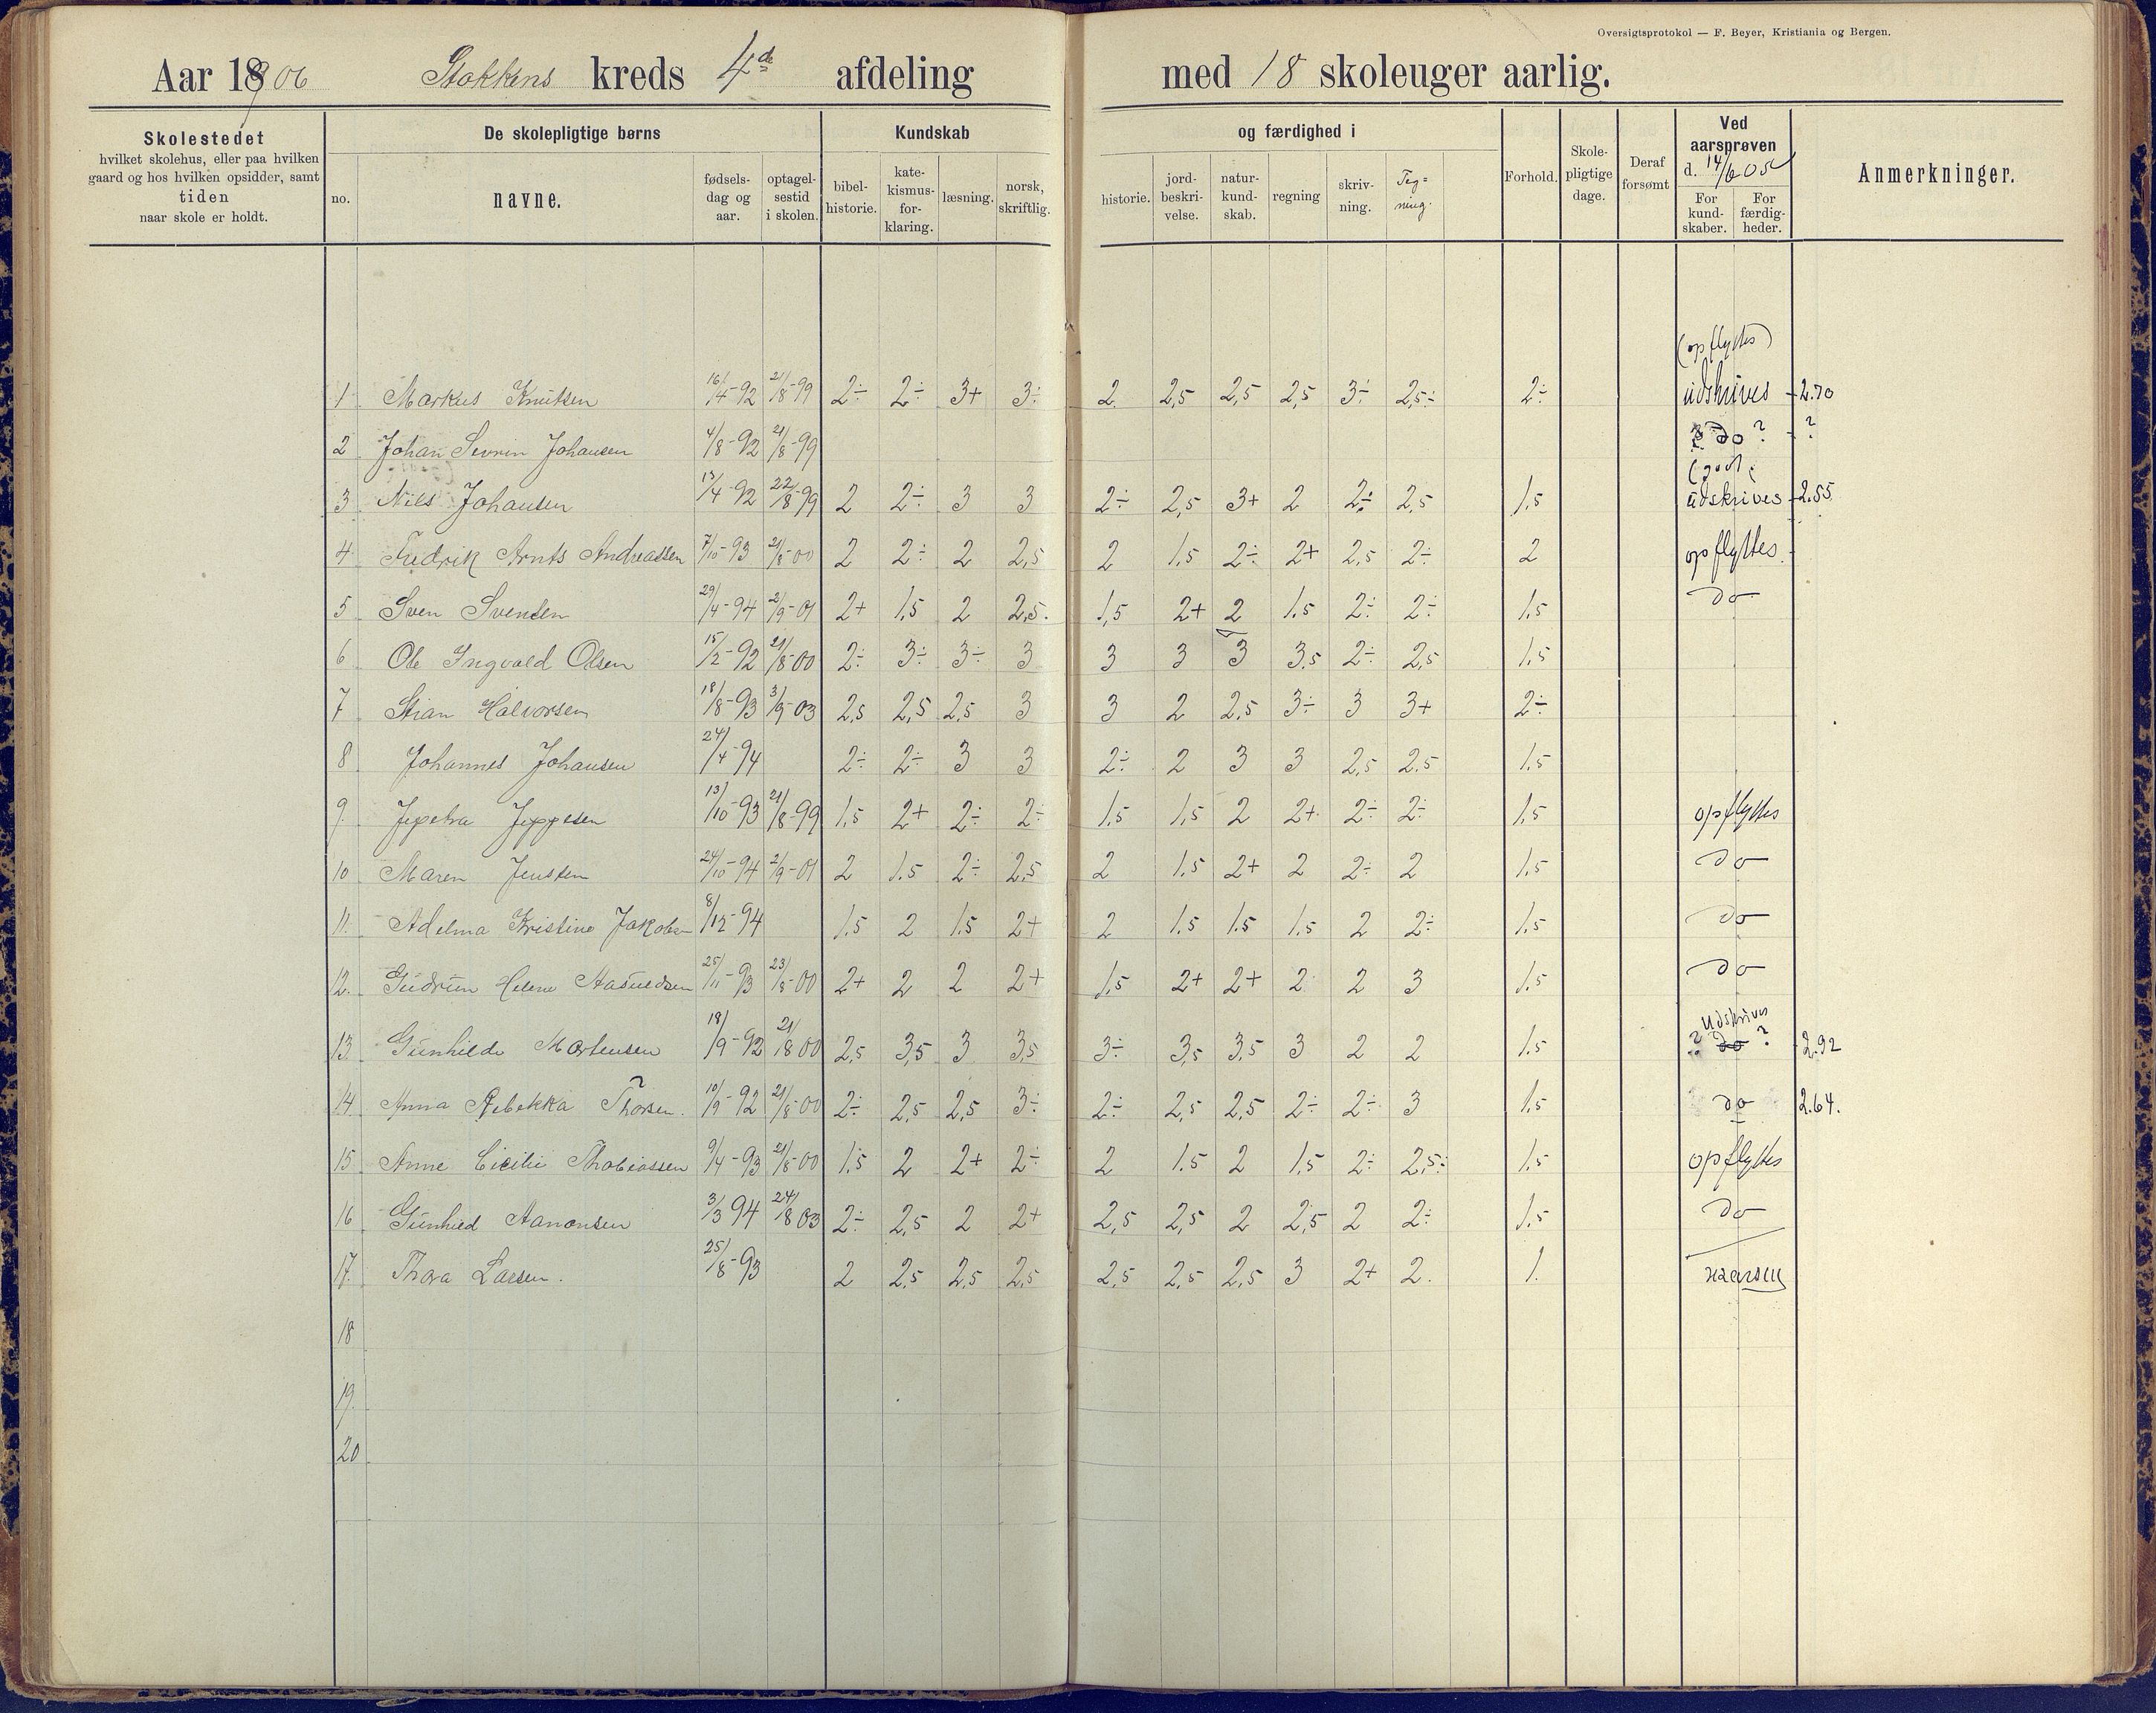 Oversigtsprotokol — F. Beyer, Kristiania og Bergen.
Aar 1906 Stokkens kreds 4de afdeling med 18 skoleuger aarlig.
Skolestedet hvilket skolehus, eller paa hvilken gaard og hos hvilken opsidder, samt tiden naar skole er holdt.
De skolepligtige børns
no. navne. fødsels-dag og aar. optagel-sestid i skolen.
Kundskab og færdighed i
bibel-historie. kate-kismus-for-klaring. læsning. norsk, skriftlig. historie. jord-beskri-velse. natur-kund-skab. regning skriv-ning. Teg=ning.
Forhold. Skole-pligtige dage. Deraf forsømt
Ved aarsprøven d. 14/6 05
For kund-skaber. For færdig-heder.
Anmerkninger.
(opflyttes)
1 Markus Knutsen 16/4-92 21/8-99 2÷ 2÷ 3+ 3÷ 2 2,5 2,5 2,5 3÷ 2,5÷ 2÷ udskrives -2.70
2 Johan Sevrin Johansen 4/8-92 21/8-99 do ? - ?
3 Nils Johansen 13/4-92 22/8-99 2 2÷ 3 3 2÷ 2,5 3+ 2 2÷ 2,5 1,5 udskrives -2.55
4 Fredrik Arnts Andreassen 7/10-93 21/8-00 2 2÷ 2 2,5 2 1,5 2÷ 2+ 2,5 2÷ 2 opflyttes.
5 Sven Svensen 29/4-94 2/9-01 2+ 1,5 2 2,5. 1,5 2+ 2 1.5 2÷ 2÷ 1.5 do
6 Ole Ingvald Olsen 15/2-92 21/8-00 2÷ 3÷ 3÷ 3 3 3 3 3.5 2÷ 2,5 1.5
7 Stian Halvorsen 18/8-93 3/9-03 2,5 2,5 2,5 3 3 2 2,5 3÷ 3 3+ 2÷
8 Johannes Johansen 24/4-94 2÷ 2÷ 3 3 2÷ 2 3 3 2,5 2.5 1.5
9 Jepetra Jeppesen 13/10-93 21/8-99 1,5 2+ 2÷ 2÷ 1.5 1.5 2 2+ 2÷ 2÷ 1.5 opflyttes
10 Maren Jensen 24/10-94 2/9-01 2 1.5 2÷ 2,5 2 1.5 2+ 2 2÷ 2 1.5 do
11. Adelma Kristine Jakobsen 8/12-94 1.5 2 1.5 2+ 2 1.5 1.5 1.5 2 2÷ 1.5 do
12. Gudrun Helene Aasuldsen 25/11-93 23/8-00 2+ 2 2 2+ 1.5 2+ 2+ 2 2 3 1.5 do
Udskrives
13. Gunhilde Mortensen 18/9-92 21/8 00 2,5 3,5 3 3,5 3÷ 3,5 3.5 3 2 2 1.5 ? do ? -2.92
14. Anna Rebekka Thorsen. 10/9-92 21/8-00 2÷ 2,5 2,5 3÷ 2÷ 2,5 2,5 2÷ 2÷ 3 1.5 do 2.64.
15 Anne Cicilie Thobiassen 9/4-93 21/8-00 1.5 2 2+ 2÷ 2 1.5 2 1.5 2÷ 2,5÷ 1.5 opflyttes
16 Gunhild Aanonsen 3/3 94 24/8 03 2÷ 2,5 2 2+ 2,5 2,5 2 2,5 2 2÷ 1.5 do
17. Thora Larsen. 25/8-93 2 2,5 2,5 2,5 2,5 2,5 2,5 3 2+ 2. 1.
18
19.
20